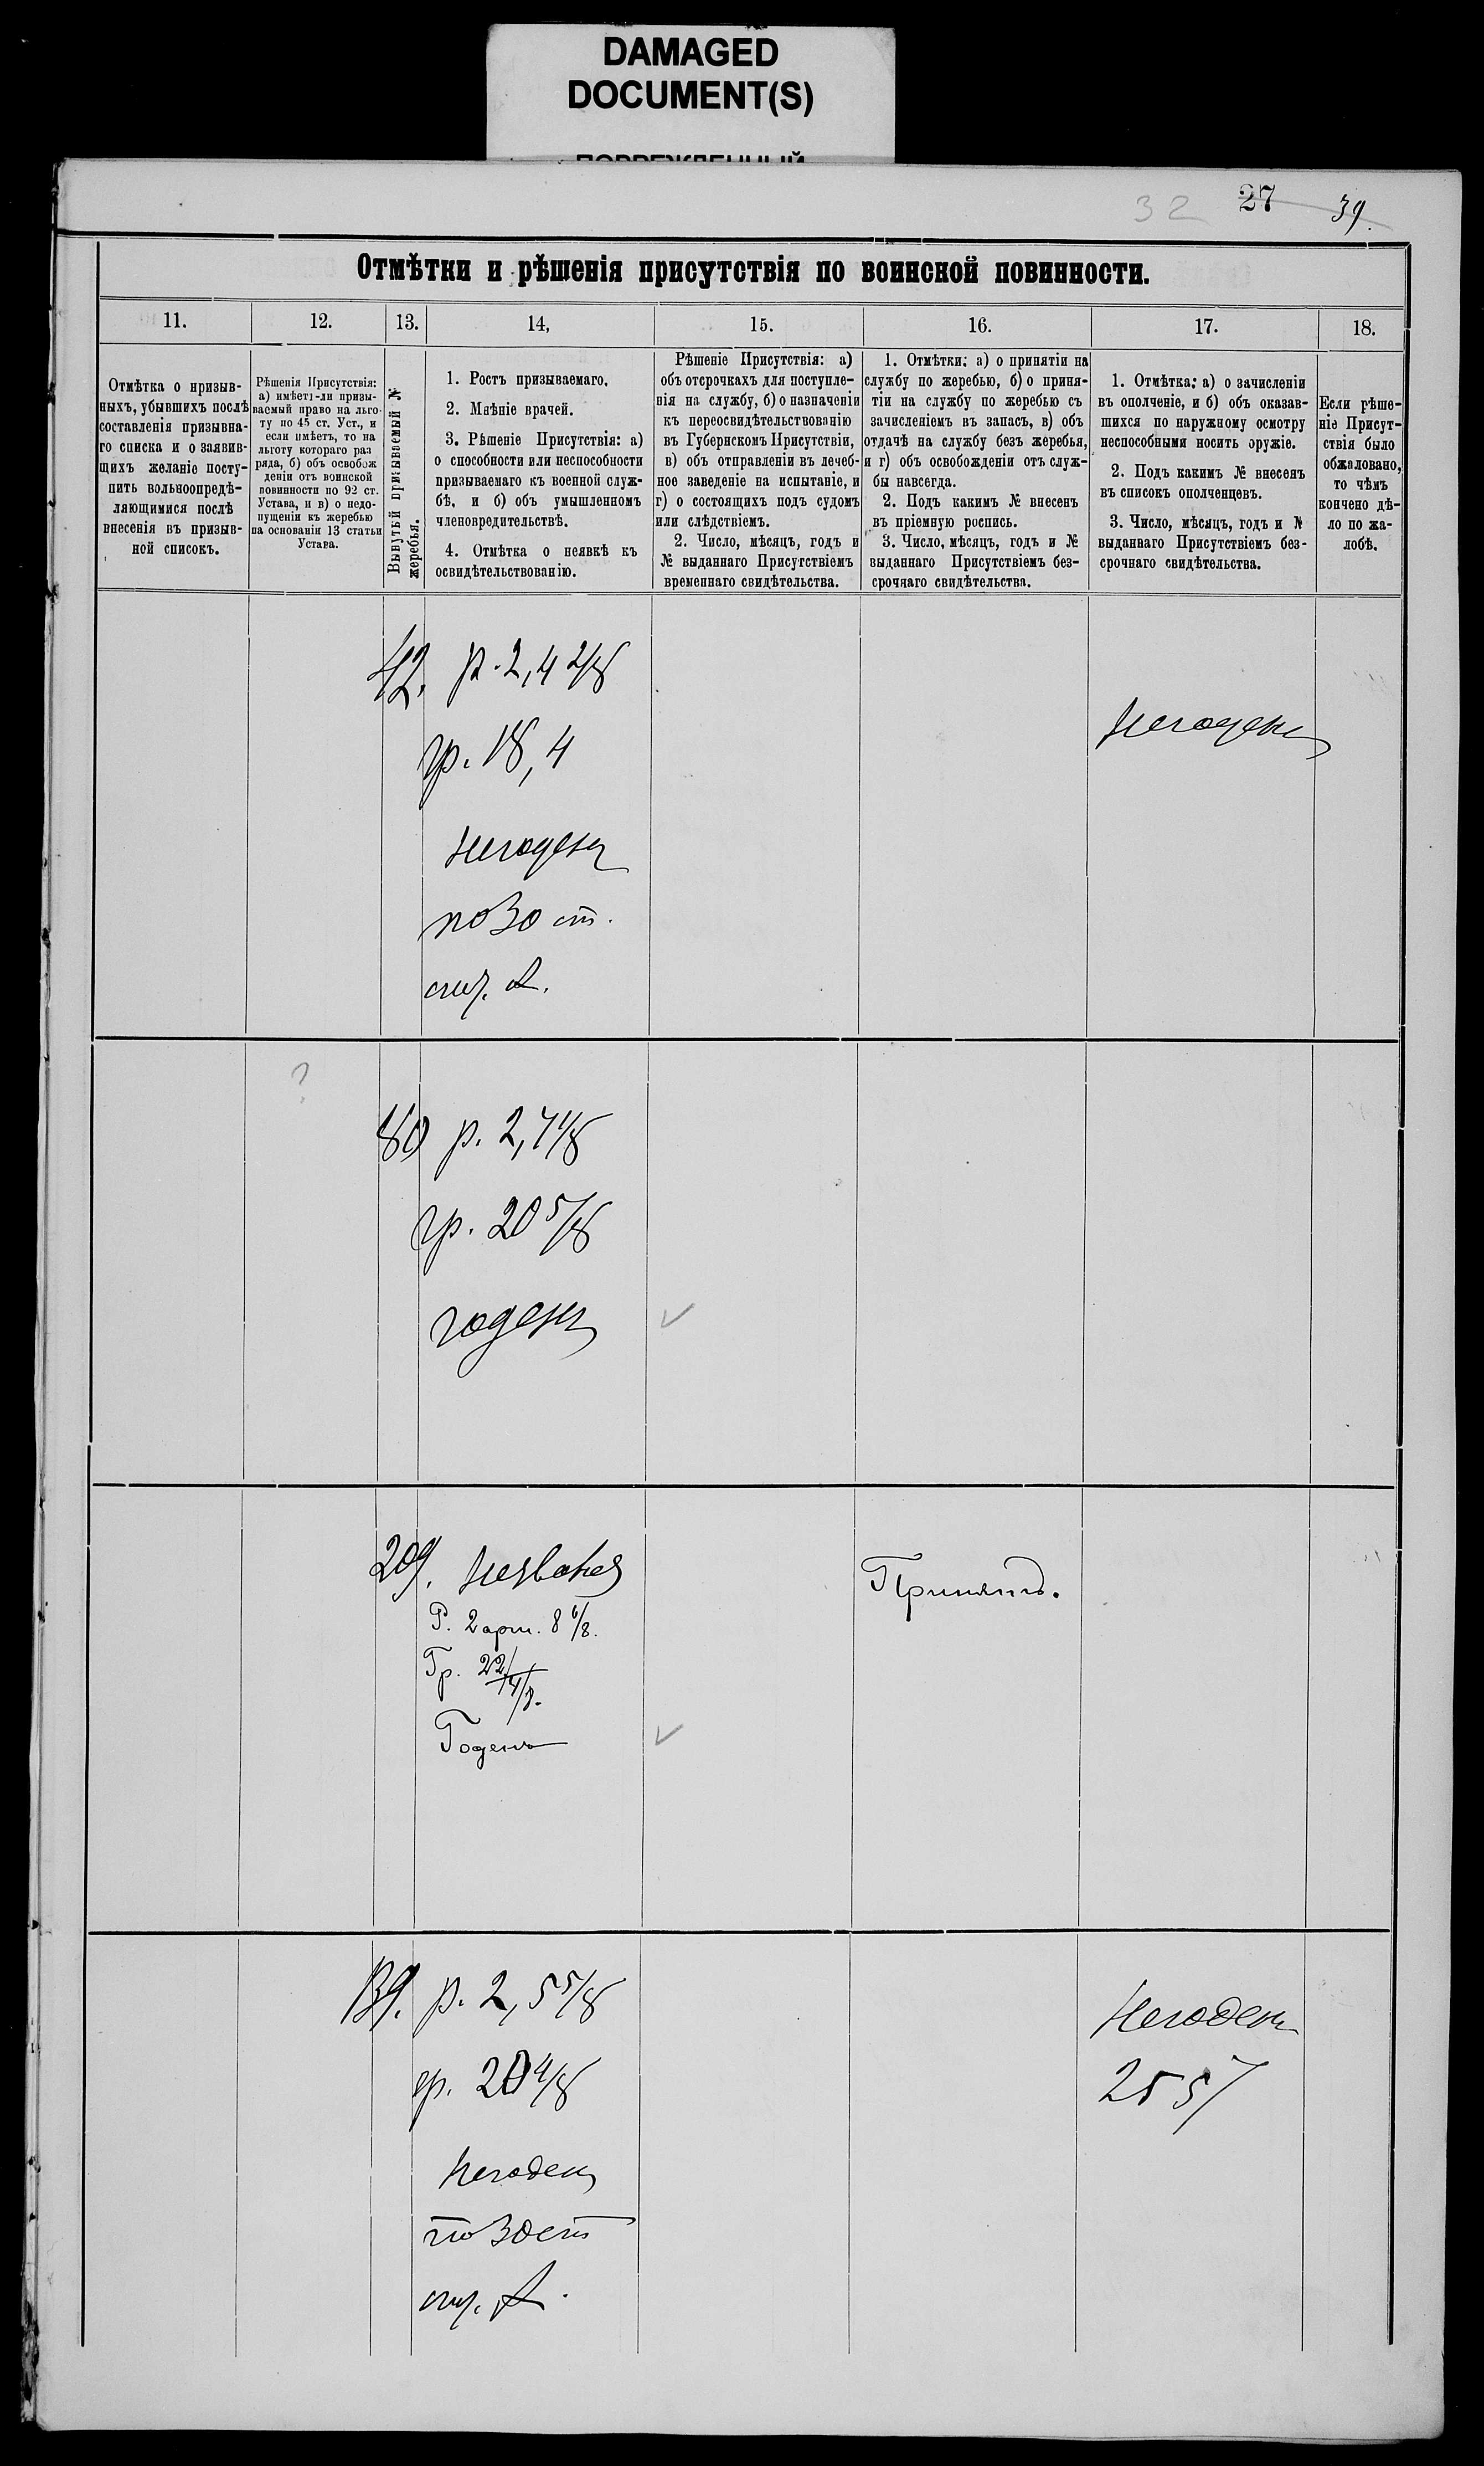 DAMAGED
DOCUMENT(S)
ПОВРЕЖДЕННЫЙ
32 27 39.
Отмѣтки и рѣшенія присутствія по воинской повинности.
11. 12. 13. 14, 15. 16. 17. 18.
Отмѣтка о призыв-
ныхъ, убывшихъ послѣ
составленія призывна-
го списка и о заявив-
щихъ желаніе посту-
пить вольноопредѣ-
ляющимися послѣ
внесенія въ призыв-
ной списокъ.
Рѣшенія Присутствія:
а) имѣетъ-ли призы-
ваемый право на льго-
ту по 45 ст. Уст., и
если имѣетъ, то на
льготу котораго раз
ряда, б) объ освобож
деніи отъ воинской
повинности по 92 ст.
Устава, и в) о недо-
пущеніи къ жеребью
на основаніи 13 статьи
Устава.
Вынутый призываемый №
жеребья.
1. Ростъ призываемаго.
2. Мнѣніе врачей.
3. Рѣшеніе Присутствія: а)
о способности или неспособности
призываемаго къ военной служ-
бѣ, и б) объ умышленномъ
членовредительствѣ.
4. Отмѣтка о неявкѣ къ
освидѣтельствованію.
Рѣшеніе Присутствія: а)
объ отсрочкахъ для поступле-
нія на службу, б) о назначеніи
къ переосвидѣтельствованію
въ Губернскомъ Присутствіи,
в) объ отправленіи въ лечеб-
ное заведеніе на испытаніе, и
г) о состоящихъ подъ судомъ
или слѣдствіемъ.
2. Число, мѣсяцъ, годъ и
№ выданнаго Присутствіемъ
временнаго свидѣтельства.
1. Отмѣтки: а) о принятіи на
службу по жеребью, б) о приня-
тіи на службу по жеребью съ
зачисленіемъ въ запасъ, в) объ
отдачѣ на службу безъ жеребья,
и г) объ освобожденіи отъ служ-
бы навсегда.
2. Подъ какимъ № внесенъ
въ пріемную роспись.
3. Число, мѣсяцъ, годъ и №
выданнаго Присутствіемъ без-
срочнаго свидѣтельства.
1. Отмѣтка: а) о зачисленіи
въ ополченіе, и б) объ оказав-
шихся по наружному осмотру
неспособными носить оружіе.
2. Подъ какимъ № внесенъ
въ списокъ ополченцевъ.
3. Число, мѣсяцъ, годъ и №
выданнаго Присутствіемъ без-
срочнаго свидѣтельства.
Если рѣше-
ніе Присут-
ствія было
обжаловано,
то чѣмъ
кончено дѣ-
ло по жа-
лобѣ.
42. р. 2, 4 2/8
гр. 18, 4
негоденъ
по 30 ст.
лит. А.
негоденъ
?
80 р. 2, 7 4/8
гр. 20 5/8
годенъ
209. неявка
Р. 2 арш. 8 6/8.
Гр. 22/4/8.
Годенъ
Принятъ.
139. р. 2, 5 5/8
гр. 20 4/8
негоденъ
по 30 ст
лит. А.
Негоденъ
2557